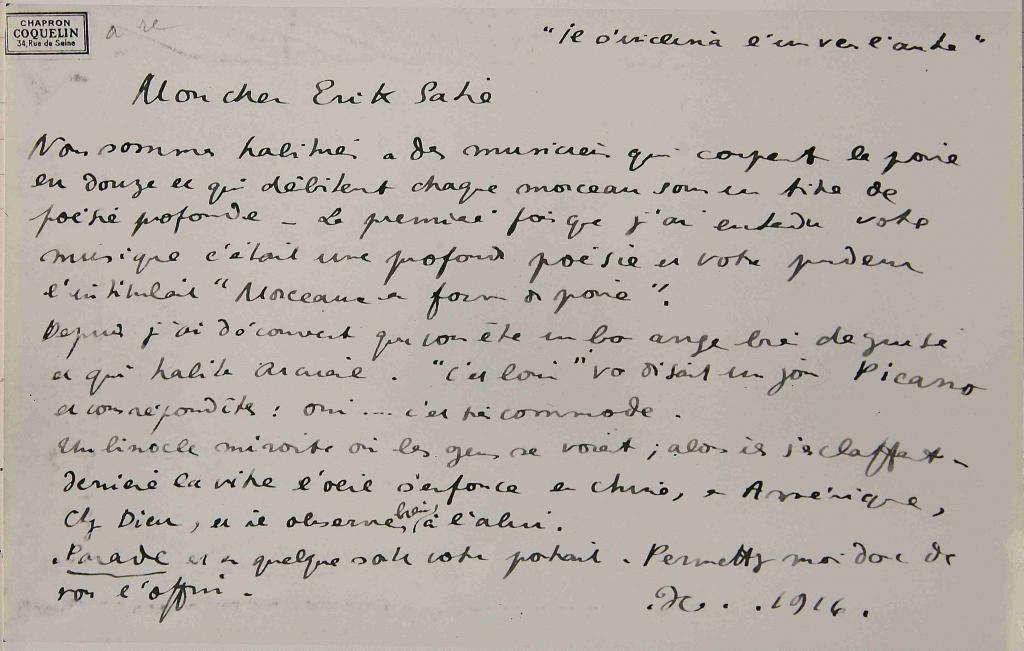 CHAPRON
COQUELIN
34, Rue de Seine
Mon cher Erik Satie
Nous sommes habitués a des musiciens qui coupent la poire
en douze et qui débitent chaque morceau sous un titre de
poésie profonde – La première fois que j'ai entendu votre
musique c'était une profonde poésie et votre pudeur
l'intitulait "Morceaux en forme de poire".
Depuis j'ai découvert que vous êtes un bon ange bien déguisé
et qui habite Arcueil. "C'est loin" vous disait un jour Picasso
et vous répondîtes : oui .... c'est très commode.
Un binocle miroite où les gens se voient ; alors ils s'esclaffent –
derrière la vitre l'œil s'enfonce en Chine, en Amérique,
Chez Dieu, et il observe bien à l'abri.
Parade est en quelque sorte votre portrait. Permettez moi donc de
vous l'offrir.
1916.